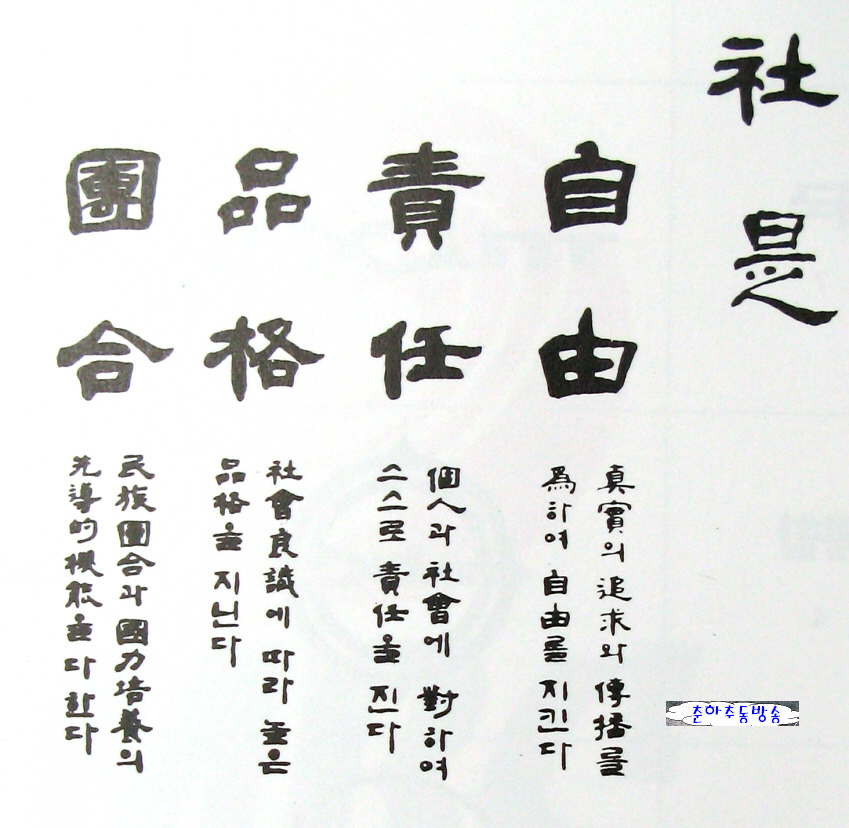 社是
自由
真實의 追求와 傳播를
爲하여 自由를 지킨다
責任
個人과 社會에 對하여
스스로 責任을 진다
品格
社會良識에 따라 높은
品格을 지닌다
團合
民族團合과 國力培養의
先導的機能을 다한다
춘하추동방송